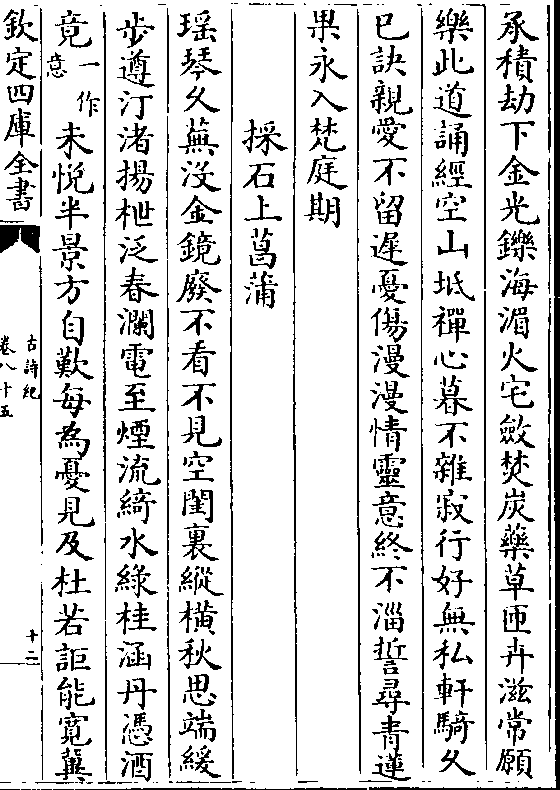 承積劫下金光鑠海湄火宅斂焚炭藥草匝卉滋常願
樂此道誦經空山坻禪心暮不雜寂行好無私軒騎久
已訣親愛不留遲憂傷漫漫情靈意終不淄誓尋青蓮
果永入梵庭期
採石上菖蒲
瑶琴久蕪没金鏡廢不看不見空閨裏縱横秋思端緩
步遵汀渚揚枻泛春瀾電至煙流綺水綠桂涵丹憑酒
竟一作意未悦半景方自歎每為憂見及杜若詎能寛冀
欽定四庫全書
古詩紀
卷八十五
十二